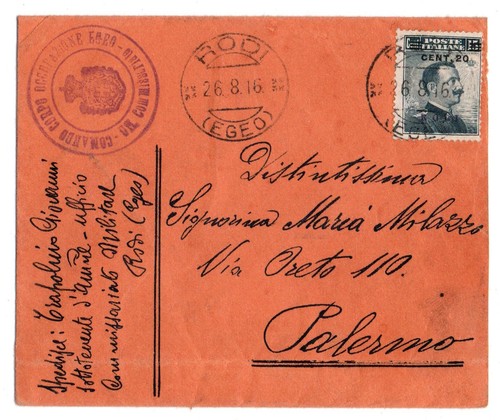 COMANDO CORPO OCCUPAZIONE EGEO
RODI
26.8.16
(EGEO)
POSTE
ITALIANE
CENT. 20
26.8.16
Distintissima
Signorina Maria Milazzo
Via Oreto 110.
Palermo
Spedisce: Trapolino Giovanni
sottotenente d'Amm.ne - ufficio
Commissariato Militare
Rodi (Egeo)